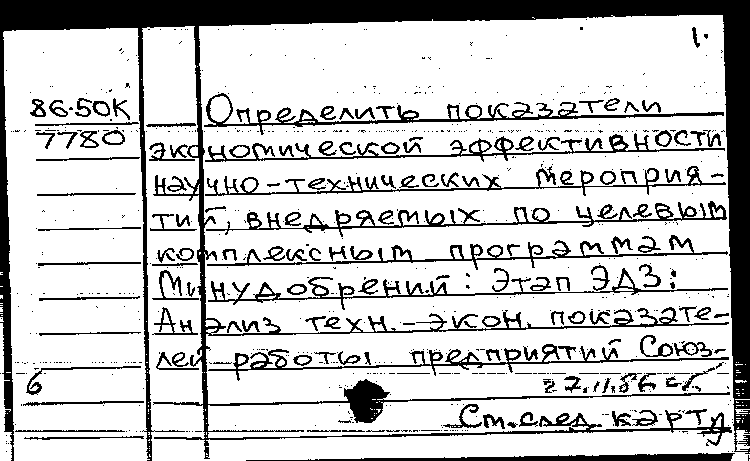 1.
86-50К Определить показатели
7780 экономической эффективности
научно-технических мероприя-
тий, внедряемых по целевым
комплексным программам
Минудобрений: Этап ЭДЗ:
Анализ техн.-экон. показате-
лей работы предприятий Союз-
6 22.11.86
См. след. карту